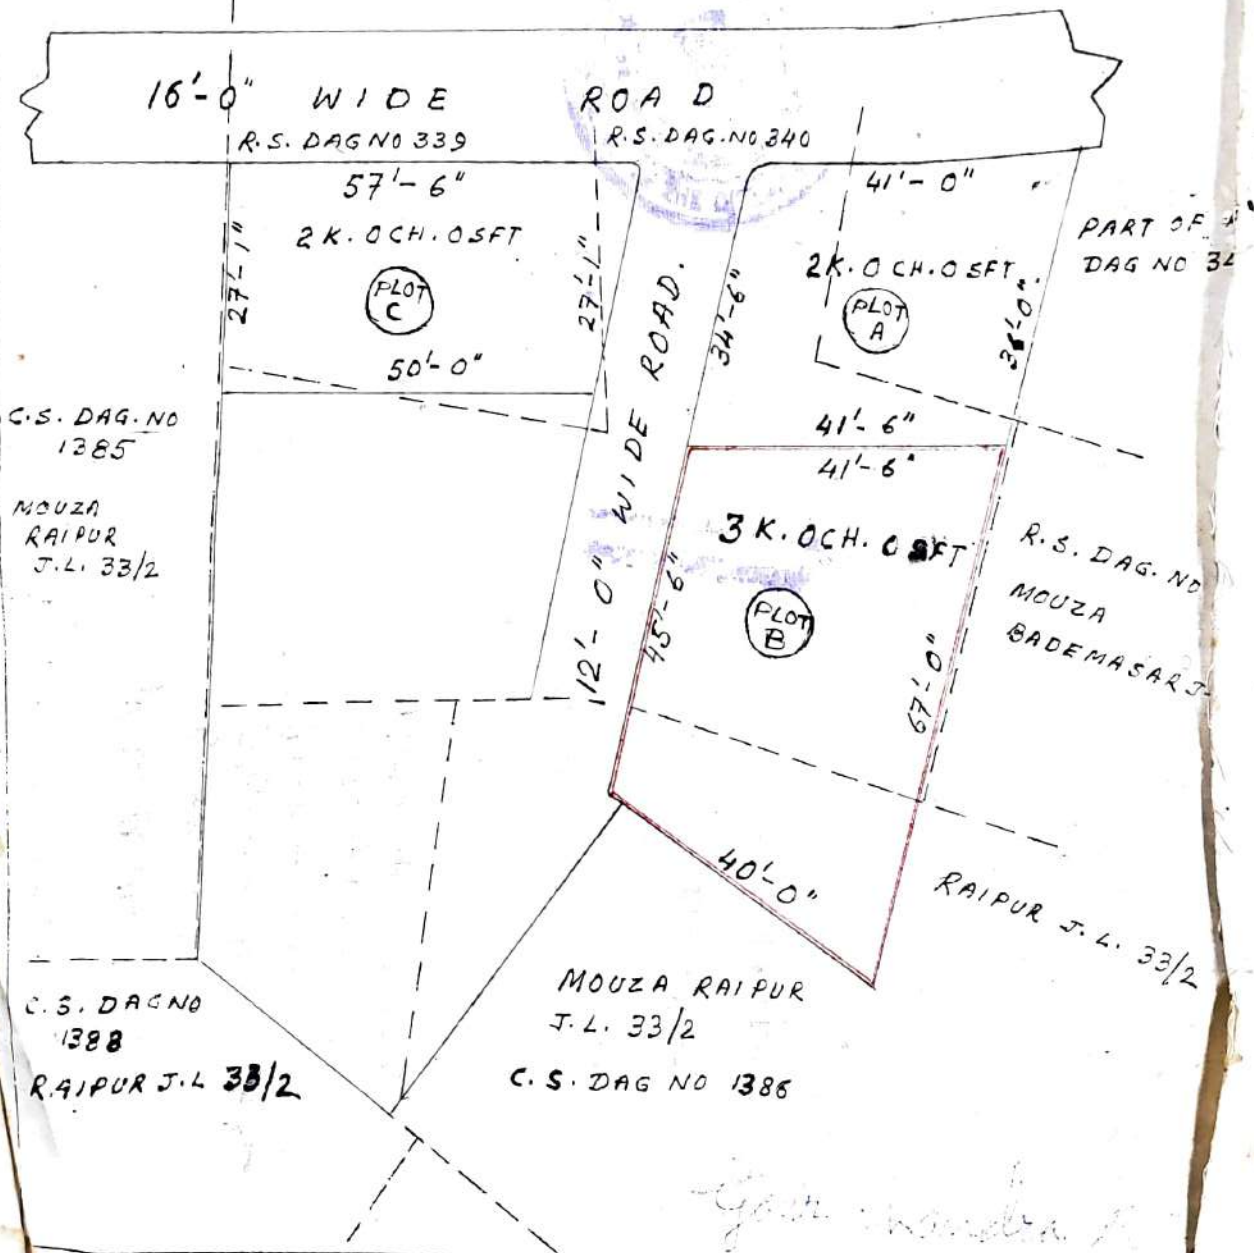 16'-0" WIDE ROAD
R.S. DAG NO 339
R.S. DAG. NO 340
57'-6"
41'-0"
2 K. 0 CH. 0 SFT
27'-1"
27'-1"
PLOT
C
50'-0"
12'-0" WIDE ROAD.
34'-6"
2 K. 0 CH. 0 SFT
PLOT
A
PART OF
DAG NO
41'-6"
41'-6"
3 K. 0 CH. 0 SFT
45'-6"
PLOT
B
67'-0"
40'-0"
C.S. DAG. NO
1385
MOUZA
RAIPUR
J.L. 33/2
R.S. DAG. NO
MOUZA
BADEMASAR J.
RAIPUR J.L. 33/2
MOUZA RAIPUR
J.L. 33/2
C.S. DAG NO 1386
C.S. DAG NO
1388
RAIPUR J.L 33/2